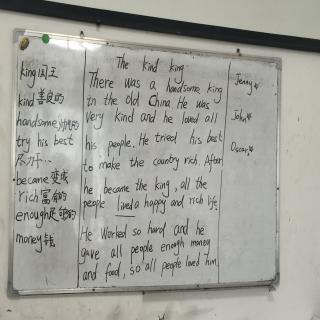 king 国王
kind 善良的
handsome 帅气的
try his best
尽力于…
became 变成
rich 富有的
enough 足够的
money 钱
The kind king
There was a handsome king
in the old China. He was
very kind and he loved all
his people. He tried his best
to make the country rich. After
he became the king, all the
people lived a happy and rich life.
He worked so hard and he
gave all people enough money
and food, so all people loved him.
Jenny
John
Oscar